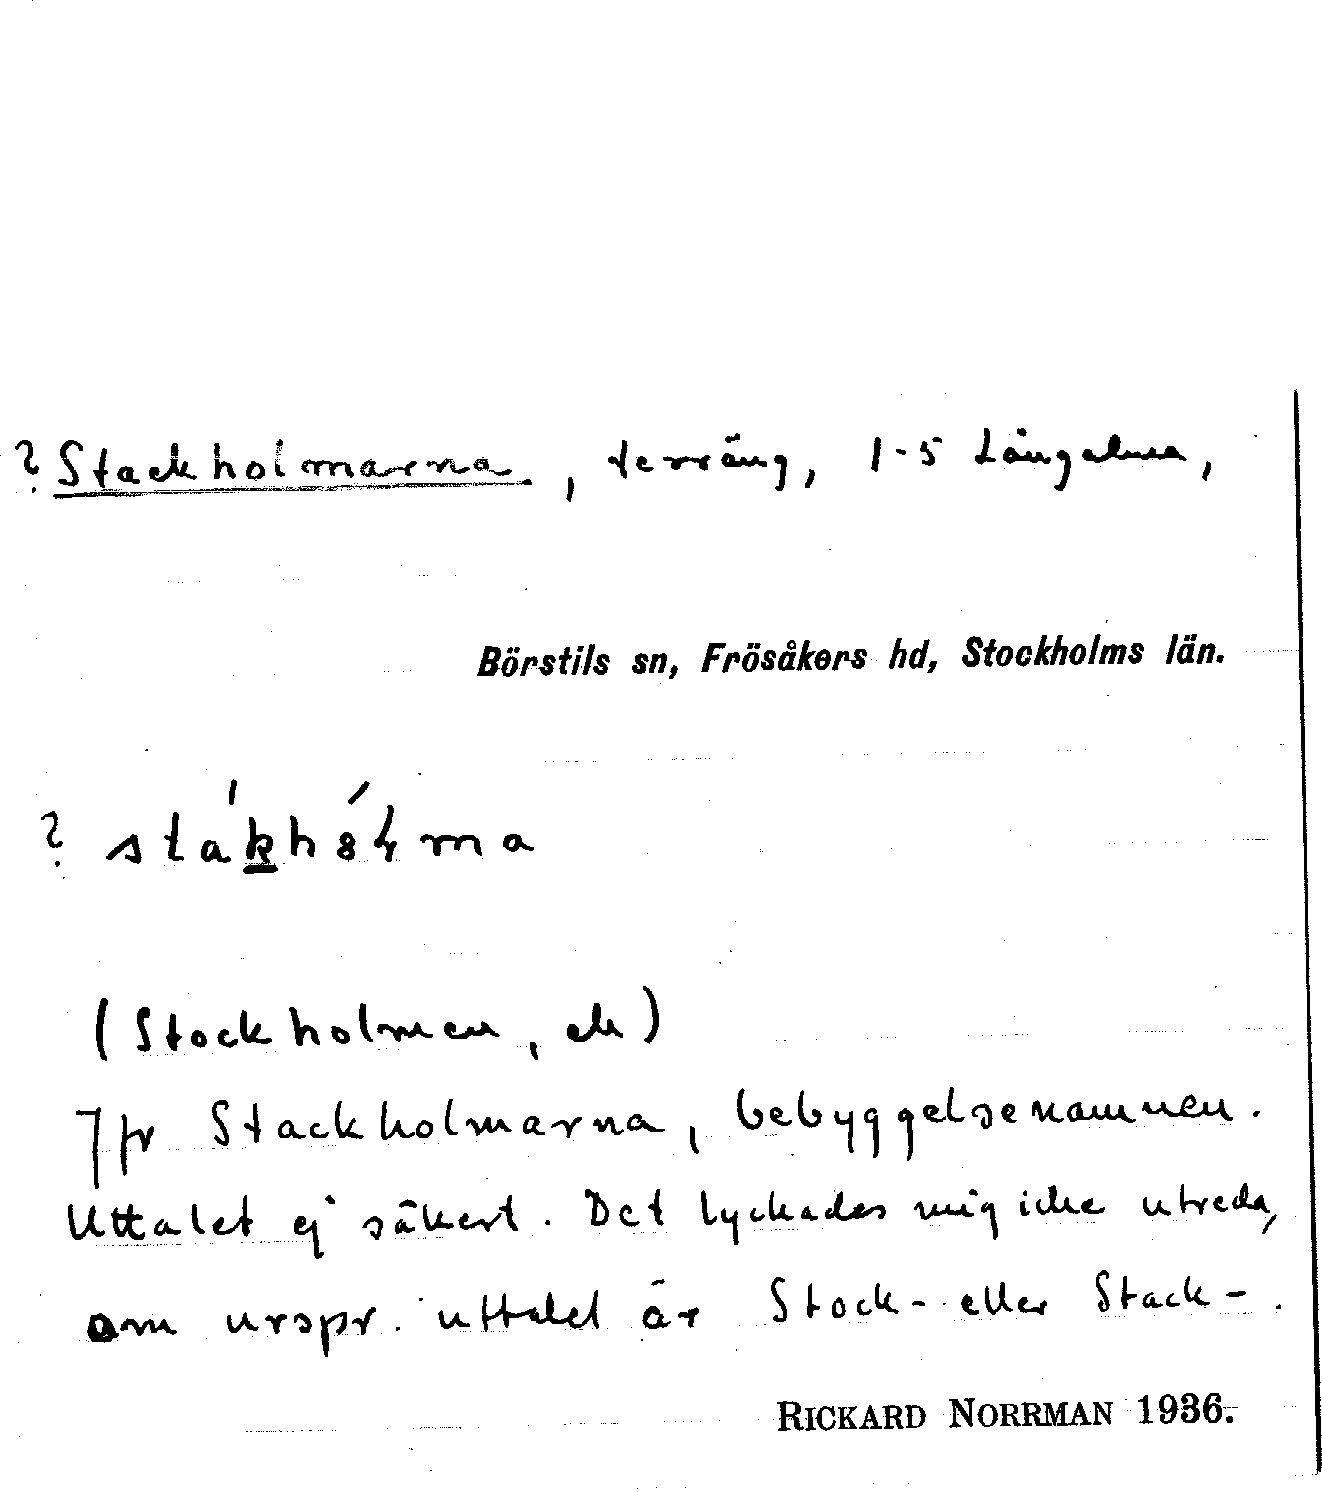 ? Stackholmarna, terräng, 1-5 Långalma,
Börstils sn, Frösåkers hd, Stockholms län.
? stákhólma
(Stockholmen, ek)
Jfr Stackholmarna, bebyggelsenamnen.
Uttalet ej säkert. Det lyckades mig icke utreda,
om urspr. uttalet är Stock- eller Stack-.
RICKARD NORRMAN 1936.